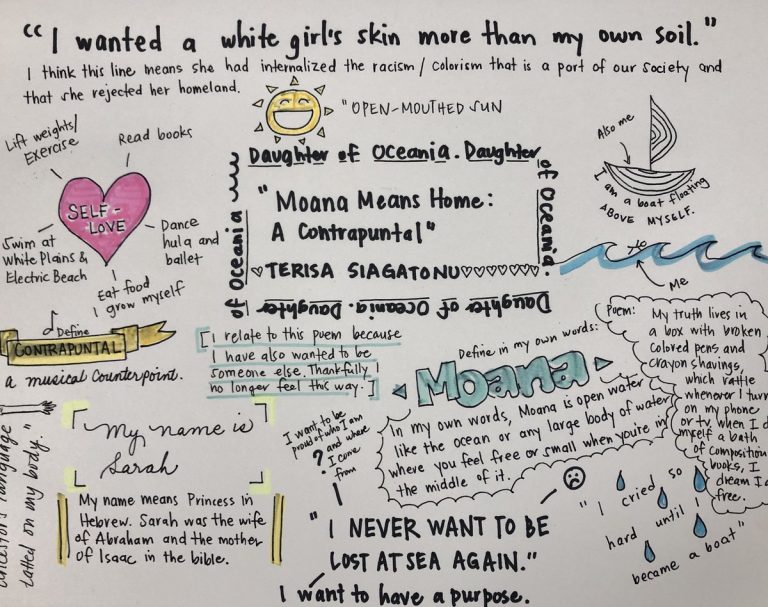 "I wanted a white girl's skin more than my own soil."
I think this line means she had internalized the racism/colorism that is a part of our society and
that she rejected her homeland.
"OPEN-MOUTHED SUN
Lift weights/
Exercise
Read books
SELF-
LOVE
Swim at
White Plains &
Electric Beach
Dance
hula and
ballet
Eat food
I grow myself
Daughter of Oceania. Daughter
of Oceania.
Daughter of Oceania. Daughter
of Oceania
"Moana Means Home:
A Contrapuntal"
TERISA SIAGATONU
Also me
I am a boat floating
ABOVE MYSELF.
Me
Define
CONTRAPUNTAL
a musical counterpoint.
[I relate to this poem because
I have also wanted to be
someone else. Thankfully I
no longer feel this way.]
Define in my own words:
Moana
In my own words, Moana is open water
like the ocean or any large body of water
where you feel free or small when you're in
the middle of it.
Poem:
My truth lives in
a box with broken
colored pens and
crayon shavings,
which rattle
whenever I turn
on my phone
or tv. When I d
myself a bath
of composition
books, I
dream I
free.
language
tatted on my body"
My name is
Sarah
My name means Princess in
Hebrew. Sarah was the wife
of Abraham and the mother
of Isaac in the bible.
I want to be
proud of who I am
and where
I come
from
?
"I NEVER WANT TO BE
LOST AT SEA AGAIN."
I want to have a purpose.
"I cried so
hard until I
became a boat"